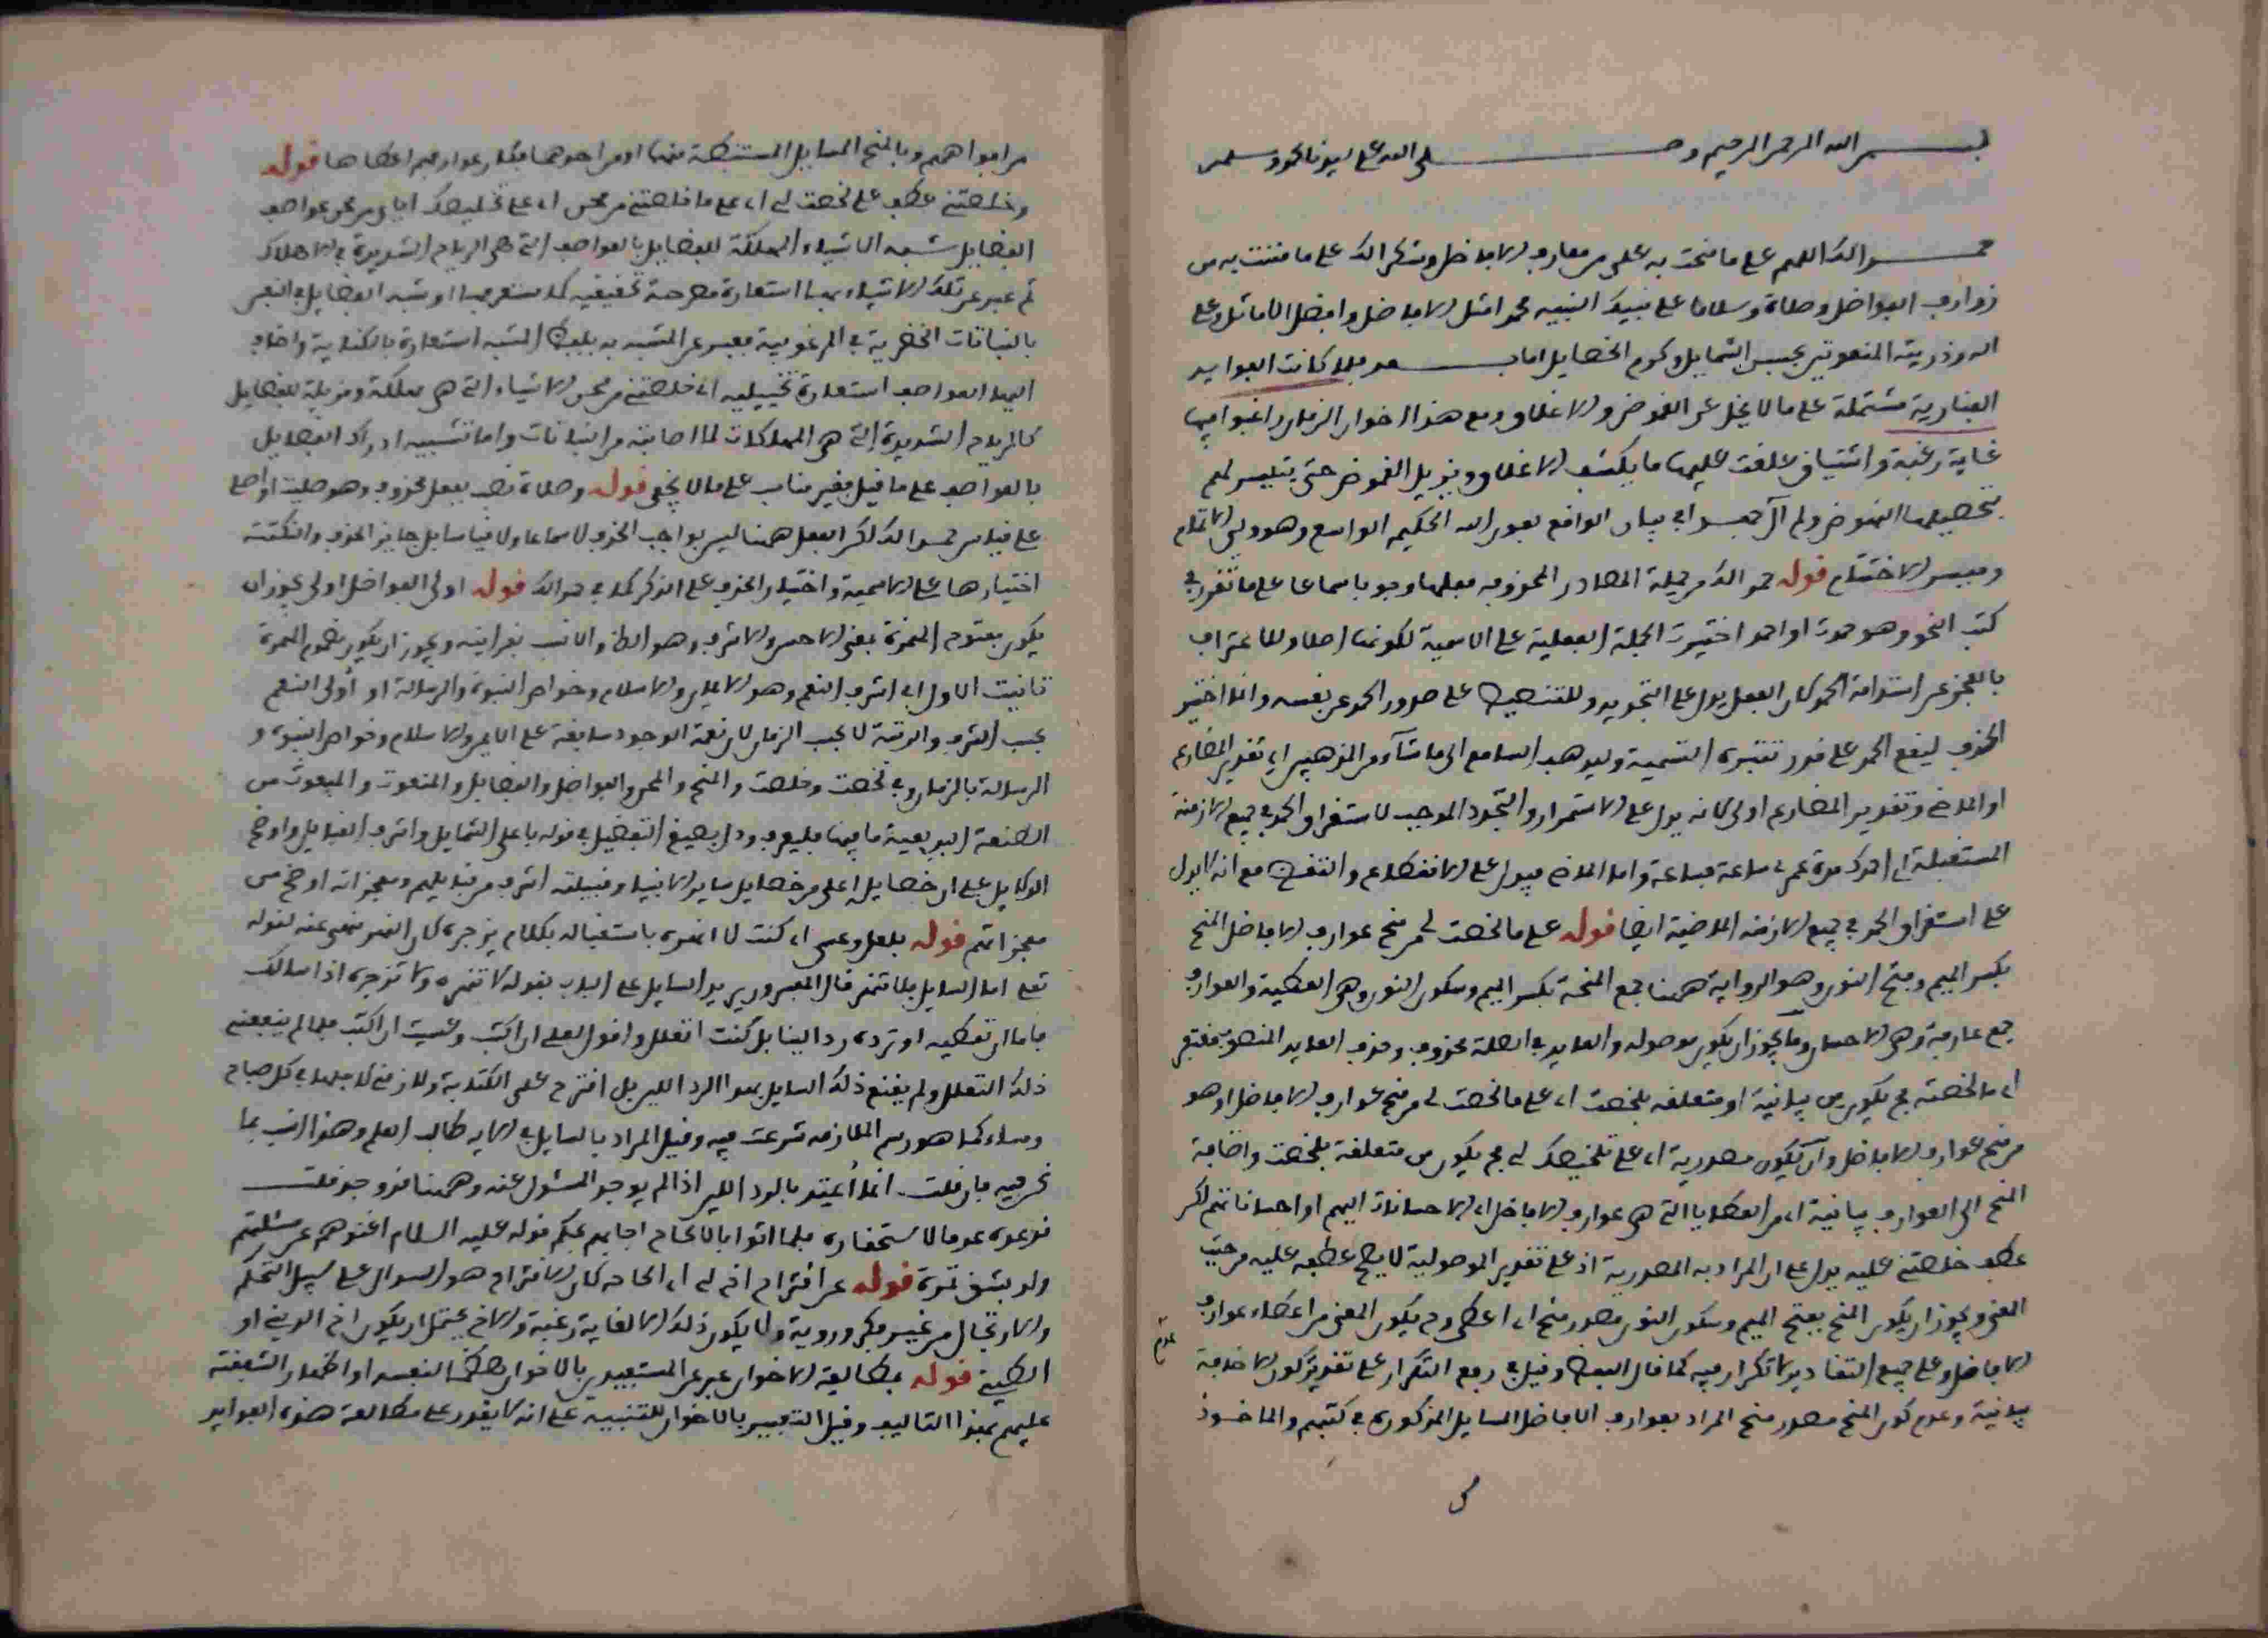 بسم الله الرحمن الرحيم وصلى الله على سيدنا محمد وسلم
حمدا لك اللهم على ما منحت به على من معارف الافاضل وشكرا لك على ما مننت به من
زوارف الفواضل وصلاة وسلاما على نبيك النبيه محمد امثل الافاضل وافضل الاماثل وعلى
اله وذريته المنعوتين بحسن الشمايل وكرم الخصايل اما بعد فلما كانت الفوايد
الفنارية مشتملة على ما لا يخلى عن الغموض والاغلاق ومع هذا اخوان الزمان راغبوا فيها
غاية رغبة واشتياق علقت عليها ما يكشف الاغلاق ويزيل الغموض حتى يتيسر لهم
تحصيلها النهوض ولم آل جهدا في بيان الواقع بعون الله الحكيم الواسع وهو ولي الاتمام
وميسر الاختتام قوله حمدا لك من جملة المصادر المحذوفه فعلها وجوبا سماعا على ما تقرر في
كتب النحو وهو حمدت او احمد اختيرت الجملة الفعلية على الاسمية لكونها اصلا وللاعتراف
بالعجز عن استدامة الحمد لان الفعل يدل على التجديد وللتنصيص على صدور الحمد عن نفسه وانما اختير
الحذف ليقع الحمد على فور تقترن التسمية وليذهب السامع الى ما شآء من المذهبين اي تقدير المضارع
او الماضي وتقدير المضارع اولى لانه يدل على الاستمرار والتجدد الموجب لاستغراق الحمد في جميع الازمنة
المستقبلة اي احمدك مدة عمري ساعة فساعة واما الماضي فيدل على الانقطاع والتقضي مع انه لا يدل
على استغراق الحمد في جميع الازمنة الماضية ايضا قوله على ما لخصت لي من منح عوارف الافاضل المنح
بكسر الميم وفتح النون وهو الرواية ههنا جمع المنحة بكسر الميم وسكون النون وهي العطية والعوارف
جمع عارفة وهي الاحسان وما يجوز ان يكون موصوله والعايد في الصلة محذوف وحذف العايد المنصوب مغتفر
اي ما لخصته فح يكون من بيانية او متعلقه بلخصت اي على ما لخصت لي من منح عوارف الافاضل او هو
من منح عوارف الافاضل وان تكون مصدرية اي على تلخيصك لي فح يكون من متعلقة بلخصت واضافة
المنح الى العوارف بيانية اي من العطايا التي هي عوارف الافاضل اي الاحسانات اليهم او احساناتهم لكن
عطف خلصتني عليه يدل على ان المراد به المصدرية اذ على تقدير الموصولية لا يصح عطفه عليه من حيث
المعنى ويجوز ان يكون المنح بفتح الميم وسكون النون مصدر منح اي اعطى وح يكون المعنى من اعطاء عوارف
الافاضل وعلى جميع التقادير لا تكرار فيه كما قال البعض وقيل في رفع التكرار على تقدير كون الاضافة
بيانية وعدم كون المنح مصدر منح المراد بعوارف الافاضل المسايل المذكورة في كتبهم والماخوذ
من افواههم وبالمنح المسايل المستنبطة منها او من احدهما فكان عوارفهم اعطاها قوله
وخلصتني عطف على لخصت لي اي على ما خلصتني من محن اي على تخليصك اياي من محن عواصف
الفضايل شبه الاشياء المهلكة للفضايل بالعواصف التي هي الرياح الشديدة في الاهلاك
ثم عبر عن تلك الاشياء بها استعارة مصرحة تحقيقيه كما ستعرفها او شبه الفضايل في النفس
بالنباتات الخضرية في المرغوبية فعبر عن المشبه به بلفظ المشبه استعارة بالكناية واضاف
اليها العواصف استعارة تخييلية اي خلصتني من محن الاشياء التي هي مهلكة ومزيلة للفضايل
كالرياح الشديدة التي هي المهلكات لما اصابته من النباتات واما تشبيه ادراك الفضايل
بالعواصف على ما قيل فغير مناسب على ما لا يخفى قوله وصلاة نصب بفعل محذوف وهو صليت او اصلي
على قياس حمدا لك لكن الفعل ههنا ليس بواجب الحذف لا سماعا ولا قياسا بل جايز الحذف والنكتة
اختيارها على الاسمية واختيار الحذف على الذكر كما في حمدا لك قوله اولى الفواضل اولى يجوز ان
يكون مفتوح الهمزة بمعنى الاحسن والاشرف وهو الظ والانسب بقراينه ويجوز ان يكون بضموم الهمزة
تانيث الاول اي اشرف النعم وهو الايمان والاسلام وخواص النبوة والرسالة او أولى النعم
بحسب الشرف والرتبة لا بحسب الزمان لان نعمة الوجود سابقة على الايمان والاسلام وخواص النبوة و
الرسالة بالزمان وفي لخصت وخلصت والمنح والمحن والفواضل والفضايل والمنعوت والمبعوث من
الصنعة البديعية ما فيها فليعرف ودل بصيغ التفضيل في قوله باعلى الشمايل واشرف القبايل واوضح
الدلايل على ان خصايل اعلى من خصايل ساير الانبياء وقبيلته اشرف من قبايلهم ومعجزاته اوضح من
معجزاتهم قوله بلعل وعسى اي كنت لا انهره باستقباله بكلام يزجره لان النهر منهي عنه لقوله
تعلى اما السايل فلا تنهر قال المفسرون يريد السايل على الباب بقوله لا تنهره ولا تزجره اذا سالك
فاما ان تعطيه او ترده ردا لينا بل كنت اتعلل واقول لعلي ان اكتب وعسيت ان اكتب فلما لم ينفعني
ذلك التعلل ولم يقنع ذلك السايل بهذا الرد اللين بل اقترح على الكتابة ولازمني لاجلها في كل صباح
ومساء كما هو رسم الملازمه شرعت فيه وقيل المراد بالسايل في الايه طالب العلم وهذا انسب بما
نحن فيه فان قلت انما يعتبر بالرد اللين اذا لم يوجد المسئول عنه وههنا قد وجد قلت
قد يعده عدما لاستحقاره فلما اتوا بالالحاح اجابهم بحكم قوله عليه السلام اغنوهم عن مسئلتهم
ولو بشق تمرة قوله عن اقتراح اخ لي اي الحاحه لان الاقتراح هو السوال على سبيل التحكم
والارتجال من غير فكر وروية ولا يكون ذلك الا لغاية رغبة والاخ يحتمل ان يكون اخ الديني او
الطيني قوله مطالعة الاخوان عبر عن المستفيدين بالاخوان هضما لنفسه او اظهارا لشفقته
عليهم بهذا التاليف وقيل التعبير بالاخوان للتنبيه على انه لا يقدر على مطالعة هذه الفوايد